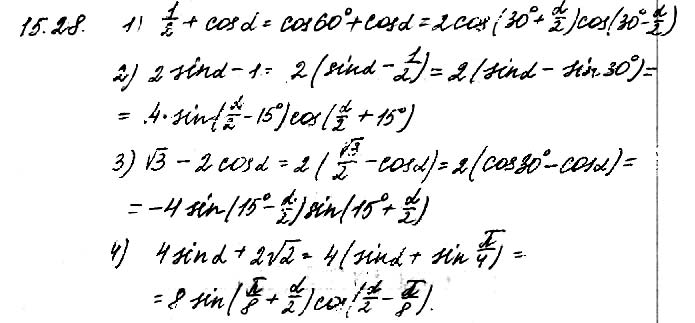 15.28. 1) 1/2 + cos α = cos 60° + cos α = 2 cos (30° + α/2) cos (30° - α/2)
2) 2 sin α - 1 = 2 (sin α - 1/2) = 2 (sin α - sin 30°) =
= 4 · sin (α/2 - 15°) cos (α/2 + 15°)
3) √3 - 2 cos α = 2 (√3/2 - cos α) = 2 (cos 30° - cos α) =
= -4 sin (15° - α/2) sin (15° + α/2)
4) 4 sin α + 2√2 = 4 (sin α + sin π/4) =
= 8 sin (π/8 + α/2) cos (α/2 - π/8).